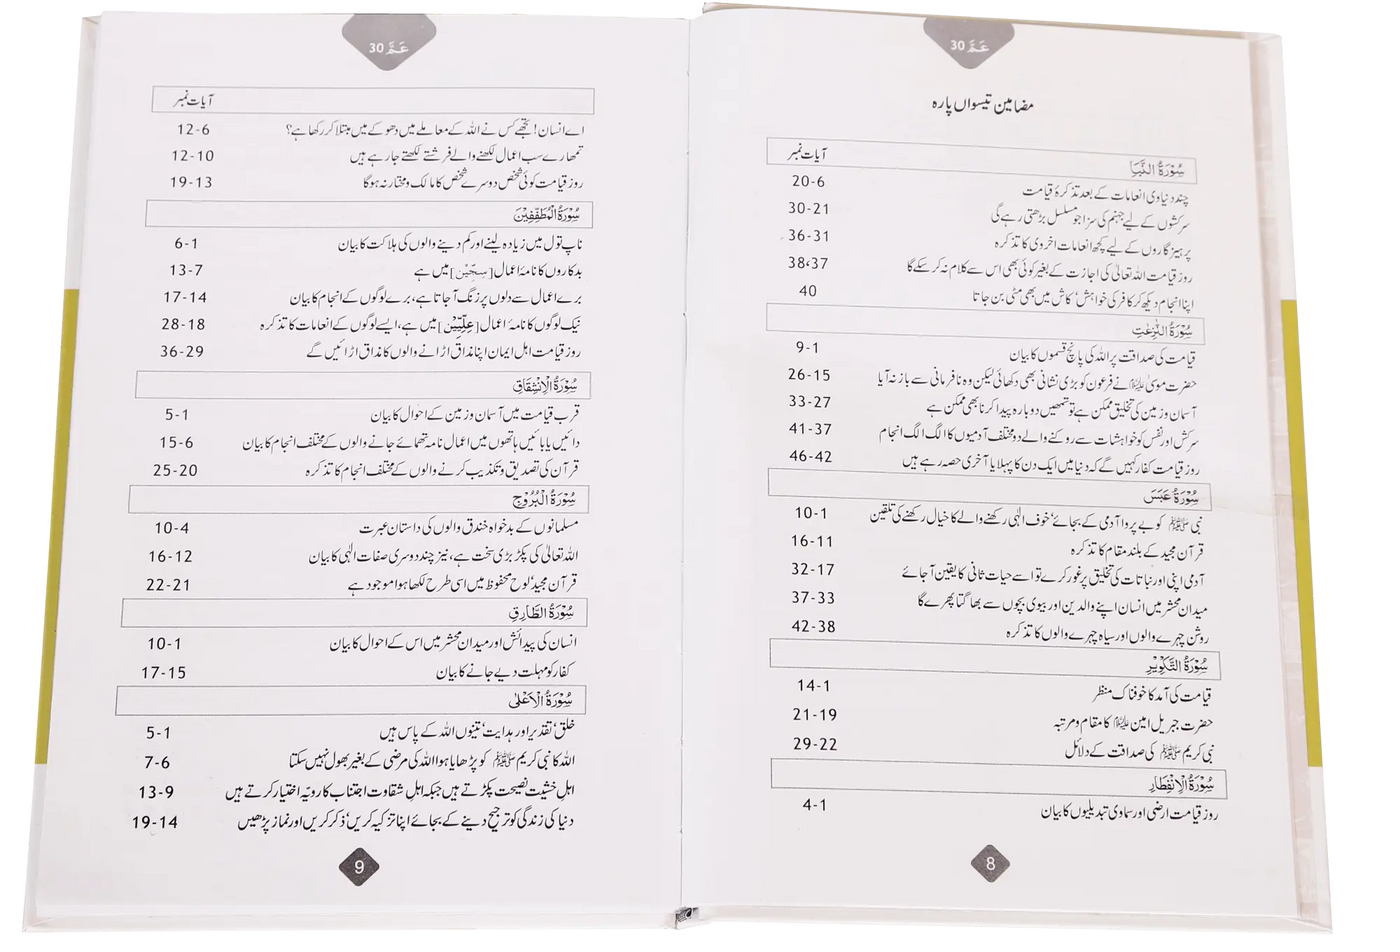 عَمَّ 30
مضامین تیسواں پارہ
آیات نمبر
سُوْرَةُ النَّبَاِ
چند دنیاوی انعامات کے بعد تذکرۂ قیامت 6-20
سرکشوں کے لیے جہنم کی سزا جو مسلسل بڑھتی رہے گی 21-30
پرہیزگاروں کے لیے کچھ انعامات اخروی کا تذکرہ 31-36
روز قیامت اللہ تعالیٰ کی اجازت کے بغیر کوئی بھی اس سے کلام نہ کر سکے گا 37،38
اپنا انجام دیکھ کر کافر کی خواہش‘ کاش میں بھی مٹی بن جاتا 40
سُوْرَةُ النّٰزِعٰتِ
قیامت کی صداقت پر اللہ کی پانچ قسموں کا بیان 1-9
حضرت موسیٰ علیہ السلام نے فرعون کو بڑی نشانی بھی دکھائی لیکن وہ نافرمانی سے باز نہ آیا 15-26
آسمان و زمین کی تخلیق ممکن ہے تو تمھیں دوبارہ پیدا کرنا بھی ممکن ہے 27-33
سرکش اور نفس کو خواہشات سے روکنے والے دو مختلف آدمیوں کا الگ الگ انجام 37-41
روز قیامت کفار کہیں گے کہ دنیا میں ایک دن کا پہلا یا آخری حصہ رہے ہیں 42-46
سُوْرَةُ عَبَسَ
نبی ﷺ کو بے پروا آدمی کے بجائے‘ خوف الٰہی رکھنے والے کا خیال رکھنے کی تلقین 1-10
قرآن مجید کے بلند مقام کا تذکرہ 11-16
آدمی اپنی اور نباتات کی تخلیق پر غور کرے تو اسے حیات ثانی کا یقین آ جائے 17-32
میدان محشر میں انسان اپنے والدین اور بیوی بچوں سے بھاگتا پھرے گا 33-37
روشن چہرے والوں اور سیاہ چہرے والوں کا تذکرہ 38-42
سُوْرَةُ التَّكْوِيْرِ
قیامت کی آمد کا خوفناک منظر 1-14
حضرت جبریل امین علیہ السلام کا مقام و مرتبہ 19-21
نبی کریم ﷺ کی صداقت کے دلائل 22-29
سُوْرَةُ الْاِنْفِطَارِ
روز قیامت ارضی اور سماوی تبدیلیوں کا بیان 1-4
8
عَمَّ 30
آیات نمبر
اے انسان! تجھے کس نے اللہ کے معاملے میں دھوکے میں مبتلا کر رکھا ہے؟ 6-12
تمھارے سب اعمال لکھنے والے فرشتے لکھتے جا رہے ہیں 10-12
روز قیامت کوئی شخص دوسرے شخص کا مالک و مختار نہ ہوگا 13-19
سُوْرَةُ الْمُطَفِّفِيْنَ
ناپ تول میں زیادہ لینے اور کم دینے والوں کی ہلاکت کا بیان 1-6
بدکاروں کا نامۂ اعمال [سِجِّيْن] میں ہے 7-13
برے اعمال سے دلوں پر زنگ آ جاتا ہے، برے لوگوں کے انجام کا بیان 14-17
نیک لوگوں کا نامۂ اعمال [عِلِّيِّيْن] میں ہے، ایسے لوگوں کے انعامات کا تذکرہ 18-28
روز قیامت اہل ایمان اپنا مذاق اڑانے والوں کا مذاق اڑائیں گے 29-36
سُوْرَةُ الْاِنْشِقَاقِ
قرب قیامت میں آسمان و زمین کے احوال کا بیان 1-5
دائیں یا بائیں ہاتھوں میں اعمال نامہ تھمائے جانے والوں کے مختلف انجام کا بیان 6-15
قرآن کی تصدیق و تکذیب کرنے والوں کے مختلف انجام کا تذکرہ 20-25
سُوْرَةُ الْبُرُوْجِ
مسلمانوں کے بدخواہ خندق والوں کی داستان عبرت 4-10
اللہ تعالیٰ کی پکڑ بڑی سخت ہے، نیز چند دوسری صفات الٰہی کا بیان 12-16
قرآن مجید‘ لوح محفوظ میں اسی طرح لکھا ہوا موجود ہے 21-22
سُوْرَةُ الطَّارِقِ
انسان کی پیدائش اور میدان محشر میں اس کے احوال کا بیان 1-10
کفار کو مہلت دیے جانے کا بیان 15-17
سُوْرَةُ الْاَعْلٰى
خلق‘ تقدیر اور ہدایت‘ تینوں اللہ کے پاس ہیں 1-5
اللہ کا نبی کریم ﷺ کو پڑھایا ہوا اللہ کی مرضی کے بغیر بھول نہیں سکتا 6-7
اہل خشیت نصیحت پکڑتے ہیں جبکہ اہل شقاوت اجتناب کا رویّہ اختیار کرتے ہیں 9-13
دنیا کی زندگی کو ترجیح دینے کے بجائے اپنا تزکیہ کریں‘ ذکر کریں اور نماز پڑھیں 14-19
9